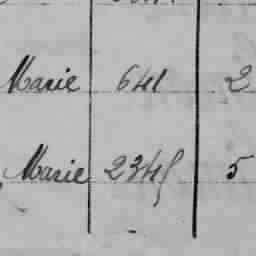 Marie 641 2
Marie 2345 5